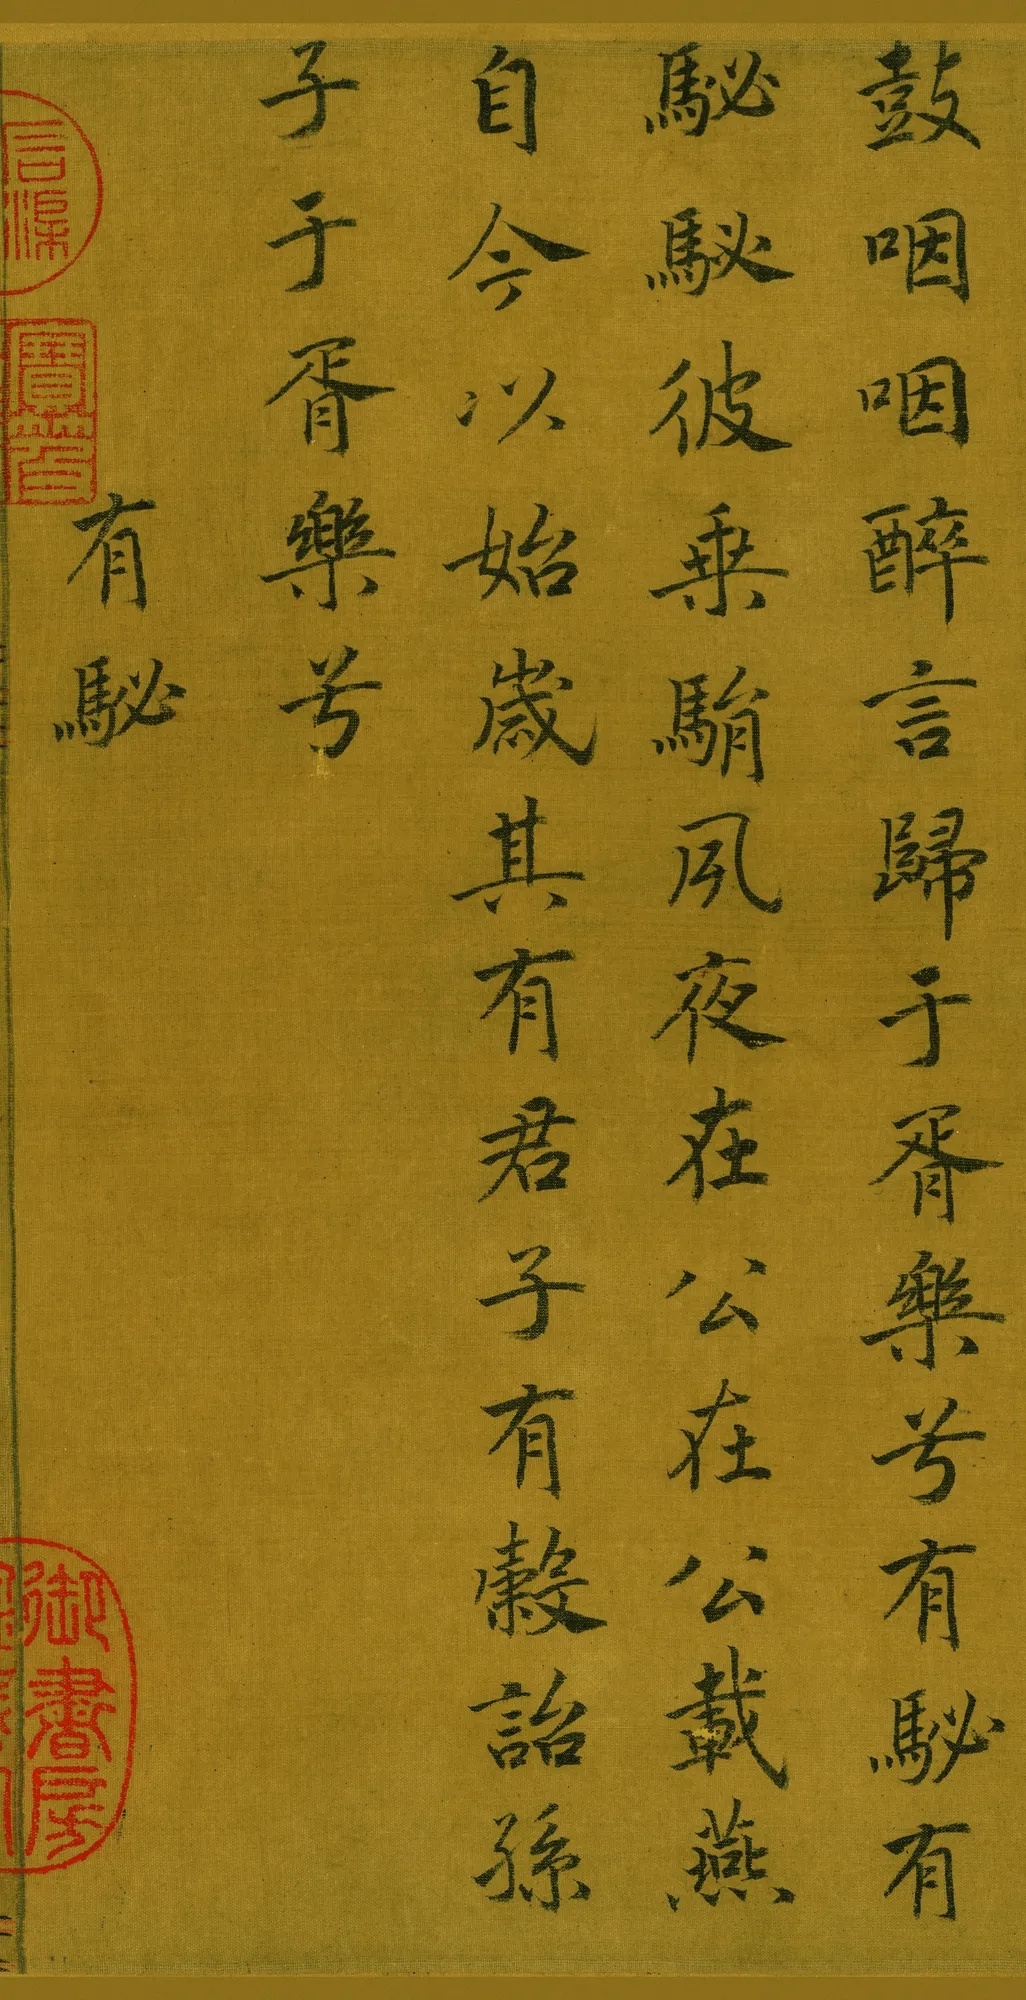 鼓咽咽醉言歸于胥樂兮有駜有
駜駜彼乗駽夙夜在公在公載燕
自今以始歳其有君子有穀詒孫
子于胥樂兮
有駜
石渠
寶笈
御書房